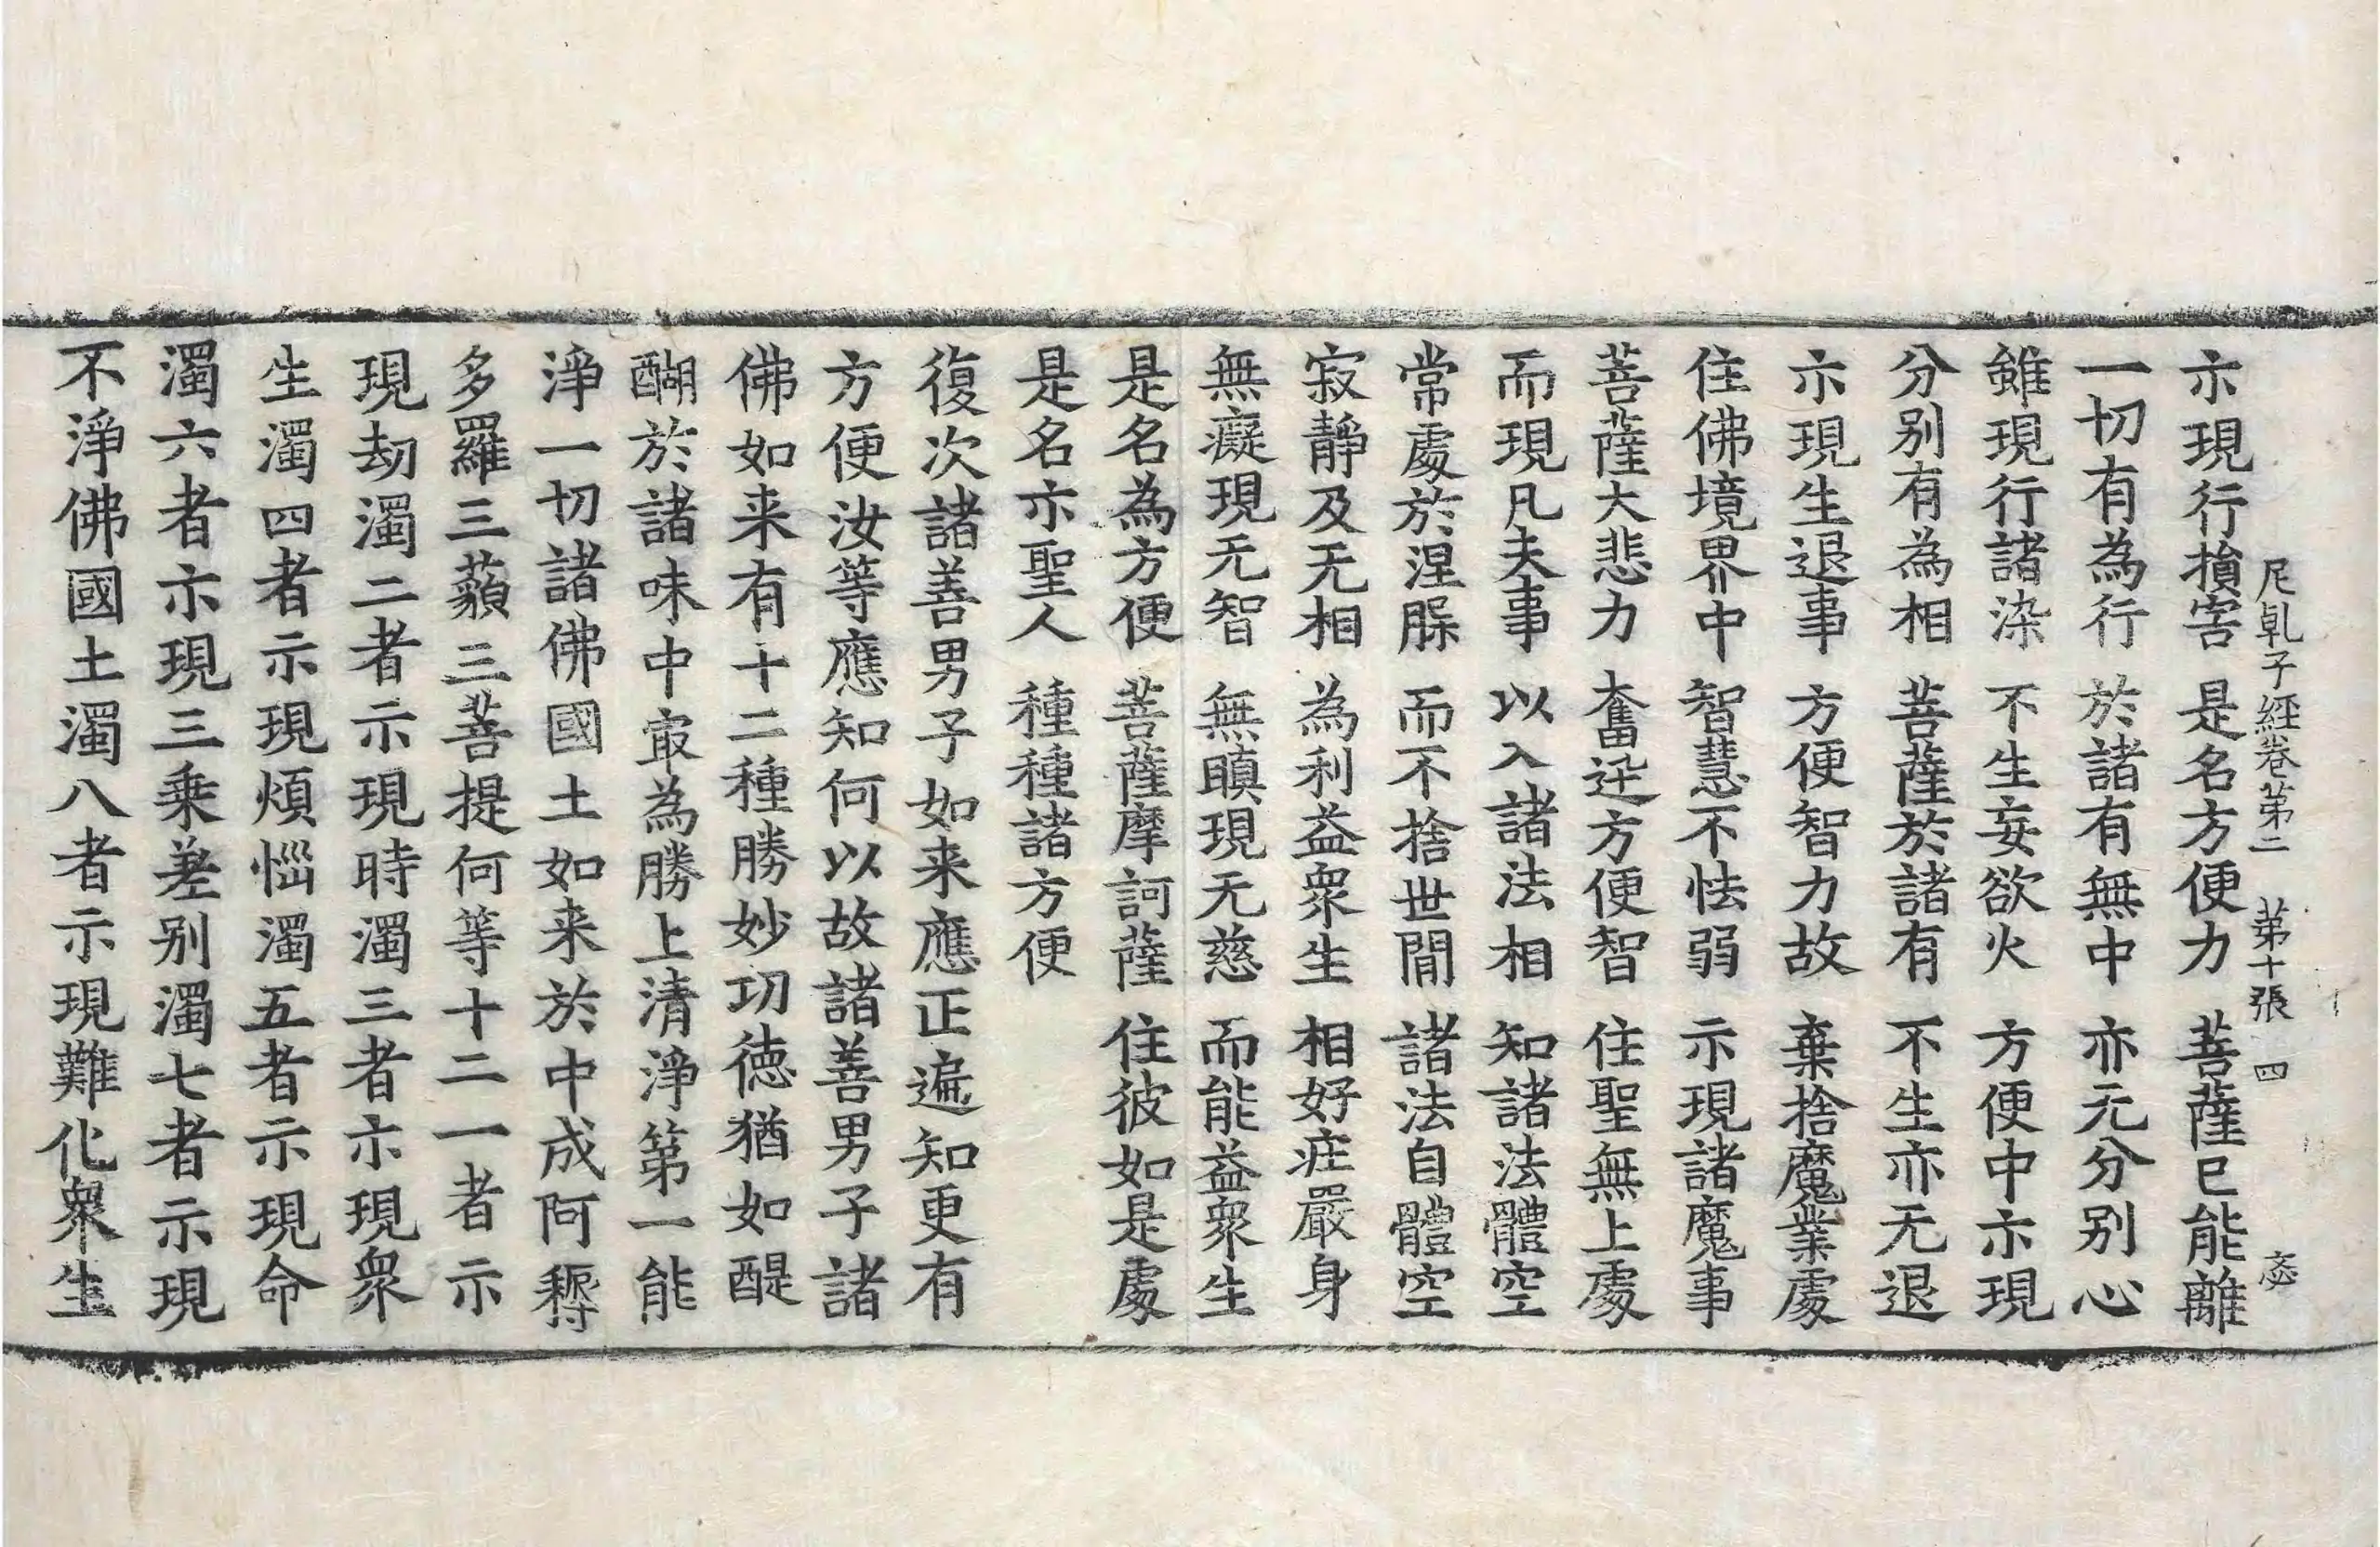 尼乹子經卷第二 第十張 四 宓
示現行損害 是名方便力 菩薩已能離
一切有為行 於諸有無中 亦无分别心
雖現行諸染 不生妄欲火 方便中示現
分别有為相 菩薩於諸有 不生亦无退
示現生退事 方便智力故 棄捨魔業處
住佛境界中 智慧不怯弱 示現諸魔事
菩薩大悲力 奮迅方便智 住聖無上處
而現凡夫事 以入諸法相 知諸法體空
常處於涅槃 而不捨世間 諸法自體空
寂靜及无相 為利益衆生 相好莊嚴身
無癡現无智 無瞋現无慈 而能益衆生
是名為方便 菩薩摩訶薩 住彼如是處
是名示聖人 種種諸方便
復次諸善男子如来應正遍知更有
方便汝等應知何以故諸善男子諸
佛如来有十二種勝妙功德猶如醍
醐於諸味中㝡為勝上清淨第一能
淨一切諸佛國土如来於中成阿耨
多羅三藐三菩提何等十二一者示
現劫濁二者示現時濁三者示現衆
生濁四者示現煩惱濁五者示現命
濁六者示現三乗差别濁七者示現
不淨佛國土濁八者示現難化衆生